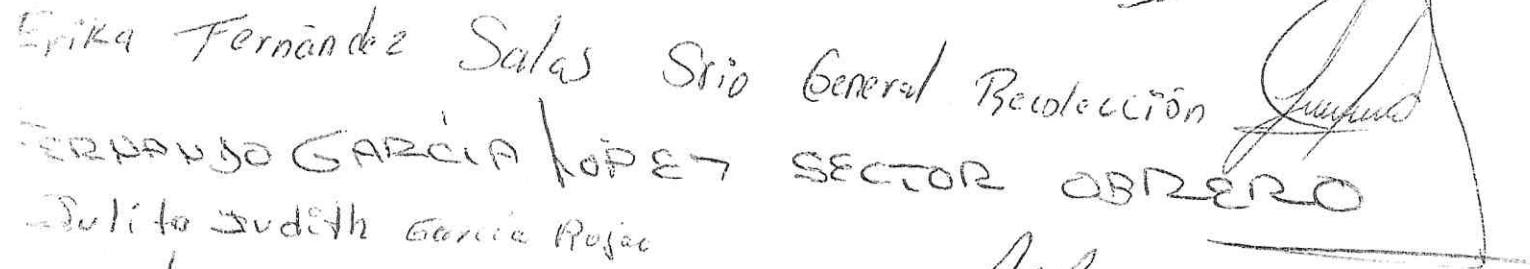 Erika Fernández Salas Srio General Recolección
FERNANDO GARCÍA LOPEZ SECTOR OBRERO
Julita Judith García Rojas